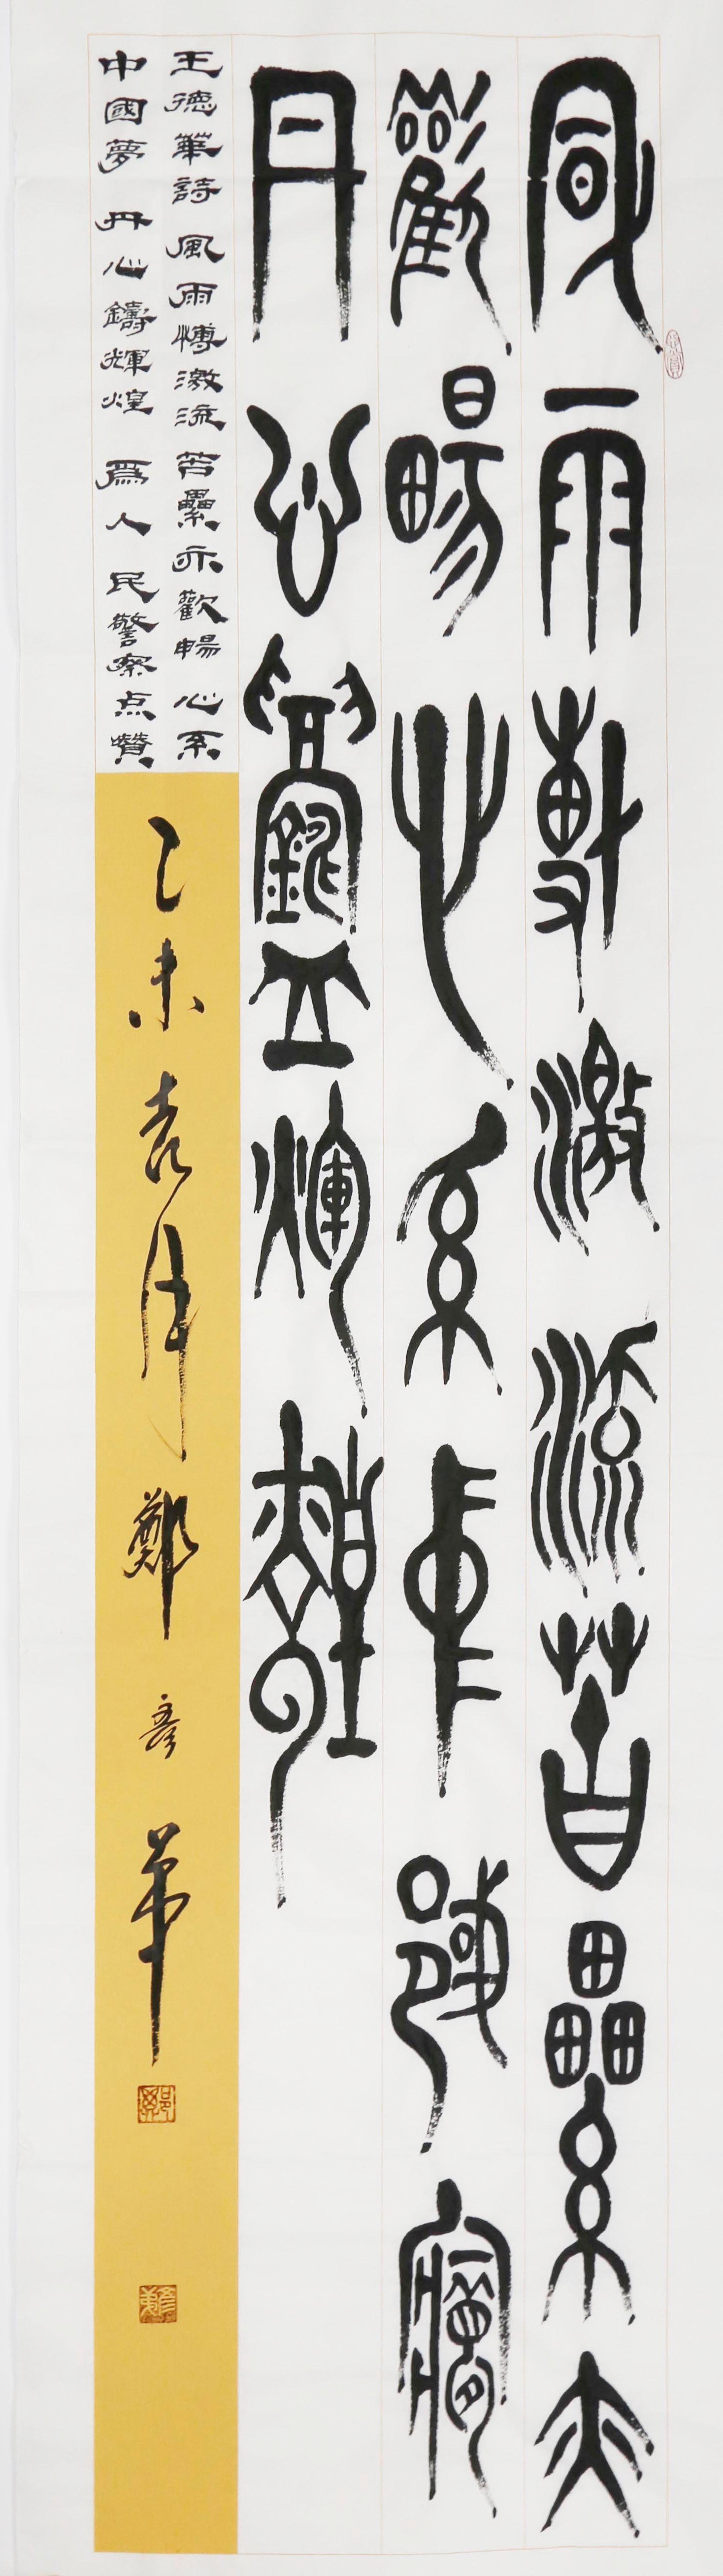 風雨搏激流苦纍亦
歡暢心系中國夢
丹心鑄輝煌
王德華詩 風雨愽激流 苦纍亦歡暢 心系
中國夢 丹心鑄輝煌 爲人民警察点贊
乙未 月 鄭彥